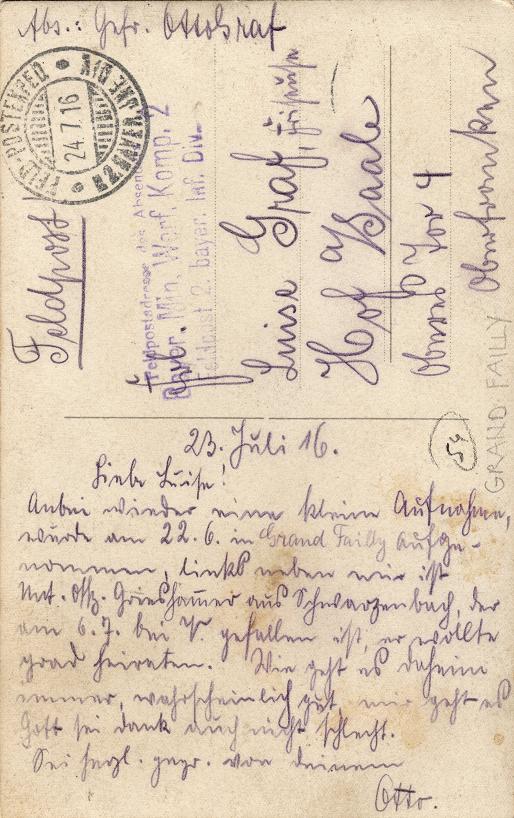 Abs.: Gefr. Otto Graf
FELD-POSTEXPED.
24.7.16
Feldpost
Feldpostadresse des Absenders
Bayer. Min. Werf. Komp. 2
Feldpost 2. bayer. Inf. Div.
Frl.
Luise Graf,
Hof a/Saale
Oberes Tor 4
Oberfranken
GRAND FAILLY
54
23. Juli 16.
Liebe Luise!
Anbei wieder eine kleine Aufnahme,
wurde am 22.6. in Grand Failly aufge-
nommen, links neben mir ist
Unt. Offz. Grieshammer aus Schwarzenbach, der
am 6.7. bei V. gefallen ist, er wollte
grad heiraten. Wie geht es daheim
immer, wahrscheinlich gut, mir geht es
Gott sei dank auch nicht schlecht.
Sei herzl. gegr. von deinem
Otto.